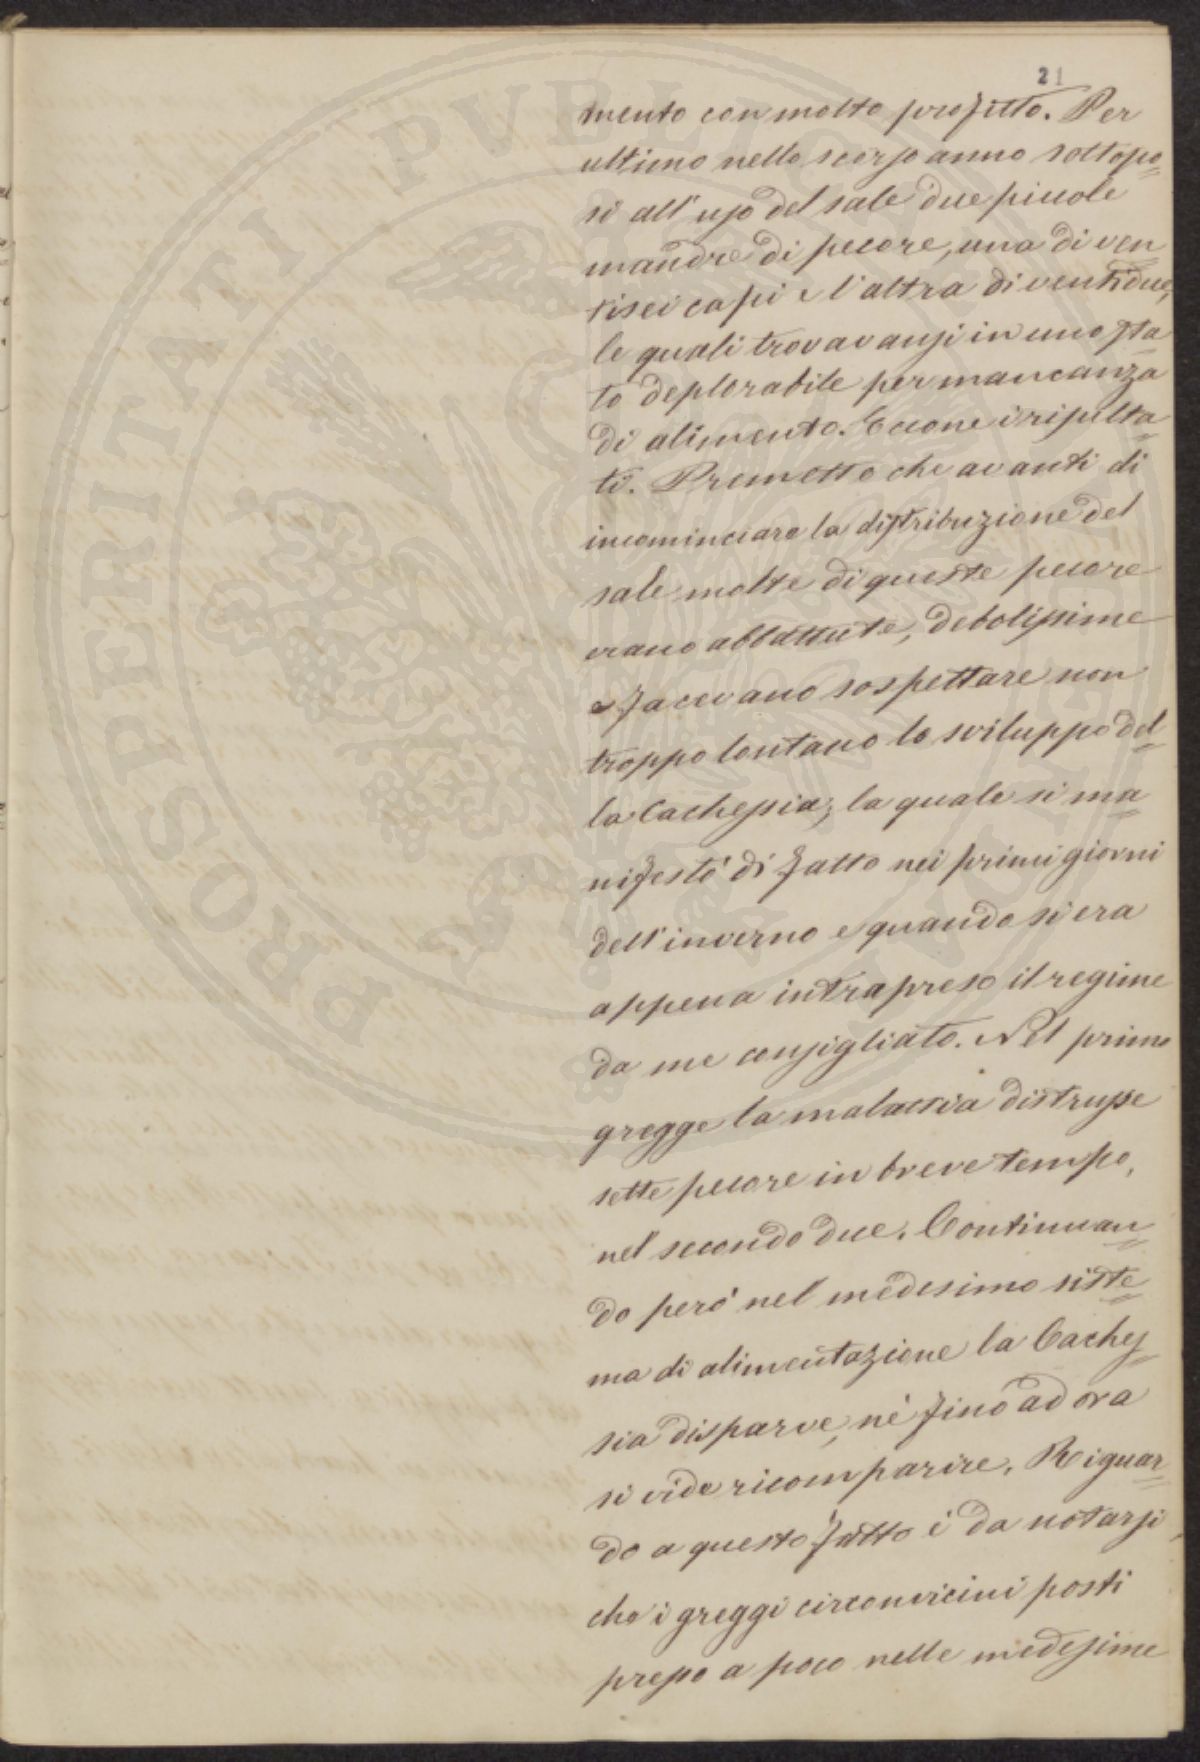 21
mento con molto profitto. Per
ultimo nello scorso anno sottopo=
si all'uso del sale due piccole
mandre di pecore, una di ven
tisei capi e l'altra di ventidue,
le quali trovavansi in uno sta=
to deplorabile per mancanza
di alimento. Eccone i risulta=
ti. Premetto che avanti di
incominciare la distribuzione del
sale molte di queste pecore
erano abbattute, debolissime
e facevano sospettare non
troppo lontano lo sviluppo del=
la Cachessia, la quale si ma=
nifestò di fatto nei primi giorni
dell'inverno e quando si era
appena intrapreso il regime
da me consigliato. Nel primo
gregge la malattia distrusse
sette pecore in breve tempo,
nel secondo due. Continuan=
do però nel medesimo siste=
ma di alimentazione la Caches=
sia disparve, nè fino ad ora
si vide ricomparire. Riguar=
do a questo fatto è da notarsi,
che i greggi circonvicini posti
presso a poco nelle medesime
PROSPERITATI PVBLICAE